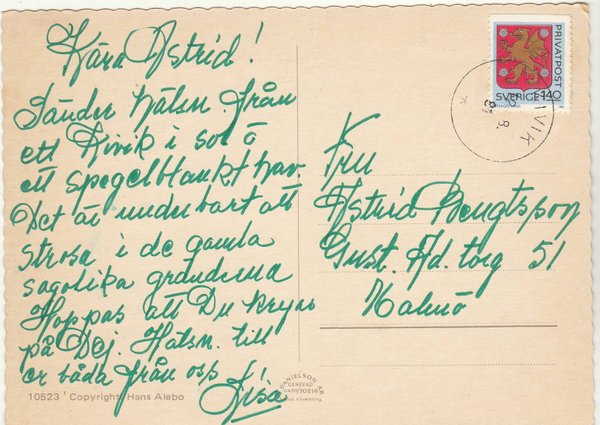 Kära Astrid!
Sänder hälsn. från
ett Kivik i sol o
ett spegelblankt hav.
Det är underbart att
strosa i de gamla
sagolika gränderna
Hoppas att Du kryar
på Dej. Hälsn. till
er båda från oss
Lisa
10523 Copyright: Hans Alebo
DANIELSON AB
GENEVAD
0430/70218
PRIVATPOST
SVERIGE 1.40
KIVIK
Fru
Astrid Bengtsson
Gust. Ad. torg 51
Malmö